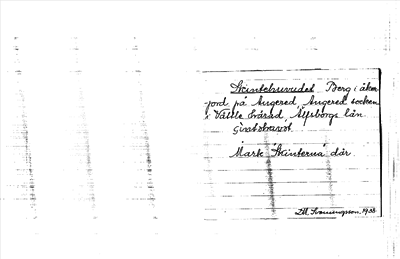 Skintehuvudet. Berg i åker
jord på Angered, Angered socken
i Vättle härad, Älfsborgs län.
Mark "Skinterna" där.
1933